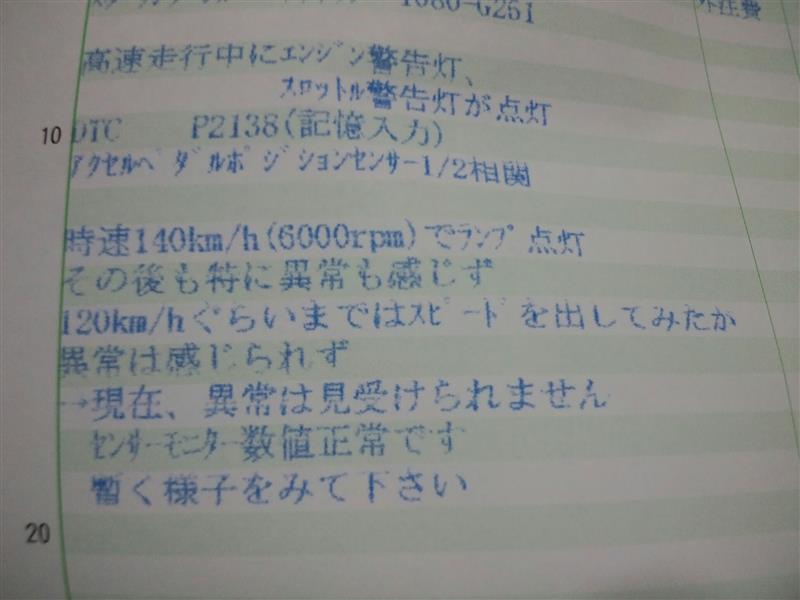 1080-G251
外注費
高速走行中にｴﾝｼﾞﾝ警告灯、
ｽﾛｯﾄﾙ警告灯が点灯
10
DTC P2138(記憶入力)
ｱｸｾﾙﾍﾟﾀﾞﾙﾎﾟｼﾞｼｮﾝｾﾝｻｰ1/2相関
時速140km/h(6000rpm)でﾗﾝﾌﾟ点灯
その後も特に異常も感じず
120km/hぐらいまではｽﾋﾟｰﾄﾞを出してみたが
異常は感じられず
→現在、異常は見受けられません
ｾﾝｻｰﾓﾆﾀｰ数値正常です
暫く様子をみて下さい
20